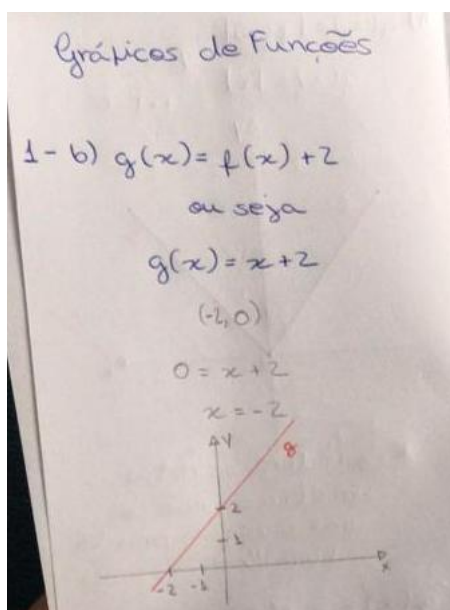 Gráficos de Funções
1- b) g(x) = f(x) + 2
ou seja
g(x) = x + 2
(-2, 0)
0 = x + 2
x = -2
y
g
2
1
x
-2 -1